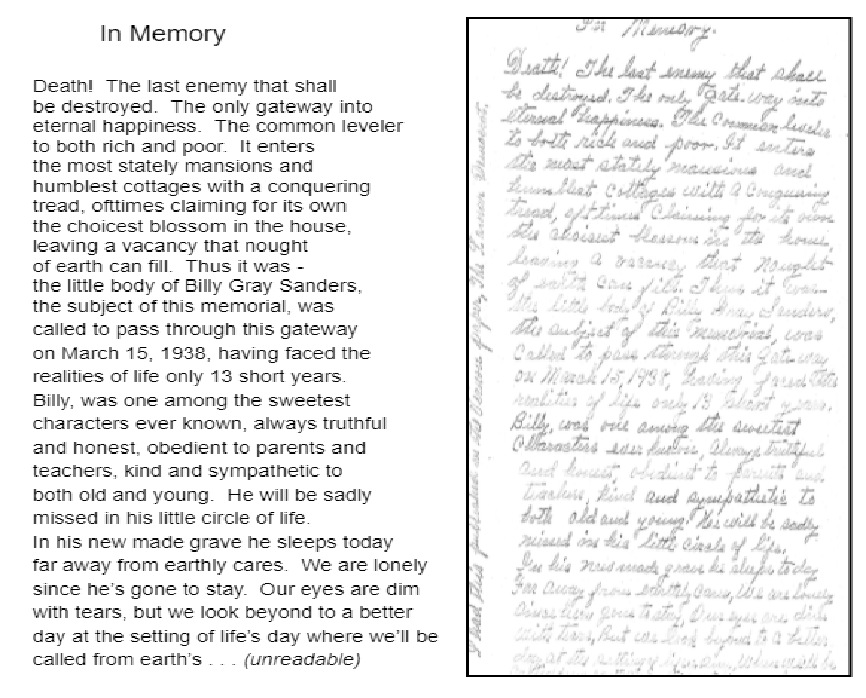 In Memory
Death!  The last enemy that shall
be destroyed.  The only gateway into
eternal happiness.  The common leveler
to both rich and poor.  It enters
the most stately mansions and
humblest cottages with a conquering
tread, ofttimes claiming for its own
the choicest blossom in the house,
leaving a vacancy that nought
of earth can fill.  Thus it was -
the little body of Billy Gray Sanders,
the subject of this memorial, was
called to pass through this gateway
on March 15, 1938, having faced the
realities of life only 13 short years.
Billy, was one among the sweetest
characters ever known, always truthful
and honest, obedient to parents and
teachers, kind and sympathetic to
both old and young.  He will be sadly
missed in his little circle of life.
In his new made grave he sleeps today
far away from earthly cares.  We are lonely
since he's gone to stay.  Our eyes are dim
with tears, but we look beyond to a better
day at the setting of life's day where we'll be
called from earth's . . . (unreadable)
In Memory.
Death! The last enemy that shall
be destroyed. The only gate-way into
eternal happiness. The Common leveler
to both rich and poor. It enters
the most stately mansions and
humblest cottages with a Conquering
tread, oft times Claiming for its own
the choisest blossom in the house,
leaving a vacancy that nought
of earth can fill. Thus it was-
the little body of Billy Gray Sanders,
the subject of this memorial, was
Called to pass through this gate way
on March 15, 1938, having faced the
realities of life only 13 short years.
Billy, was one among the sweetest
Characters ever known, always truthful
and honest obedient to parents and
teachers, kind and sympathetic to
both old and young. He will be sadly
missed in his little circle of life.
In his new made grave he sleeps to day
Far away from earthly cares, We are lonely
Since he's gone to stay, Our eyes are dim
with tears, But we look beyond to a better
day at the setting of when we'll be
I had this published in paper, The